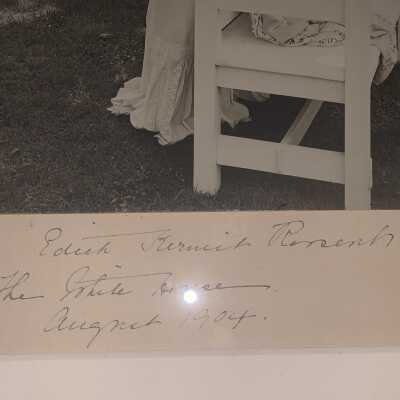 Edith Kermit Roosevelt
The White House.
August 1904.